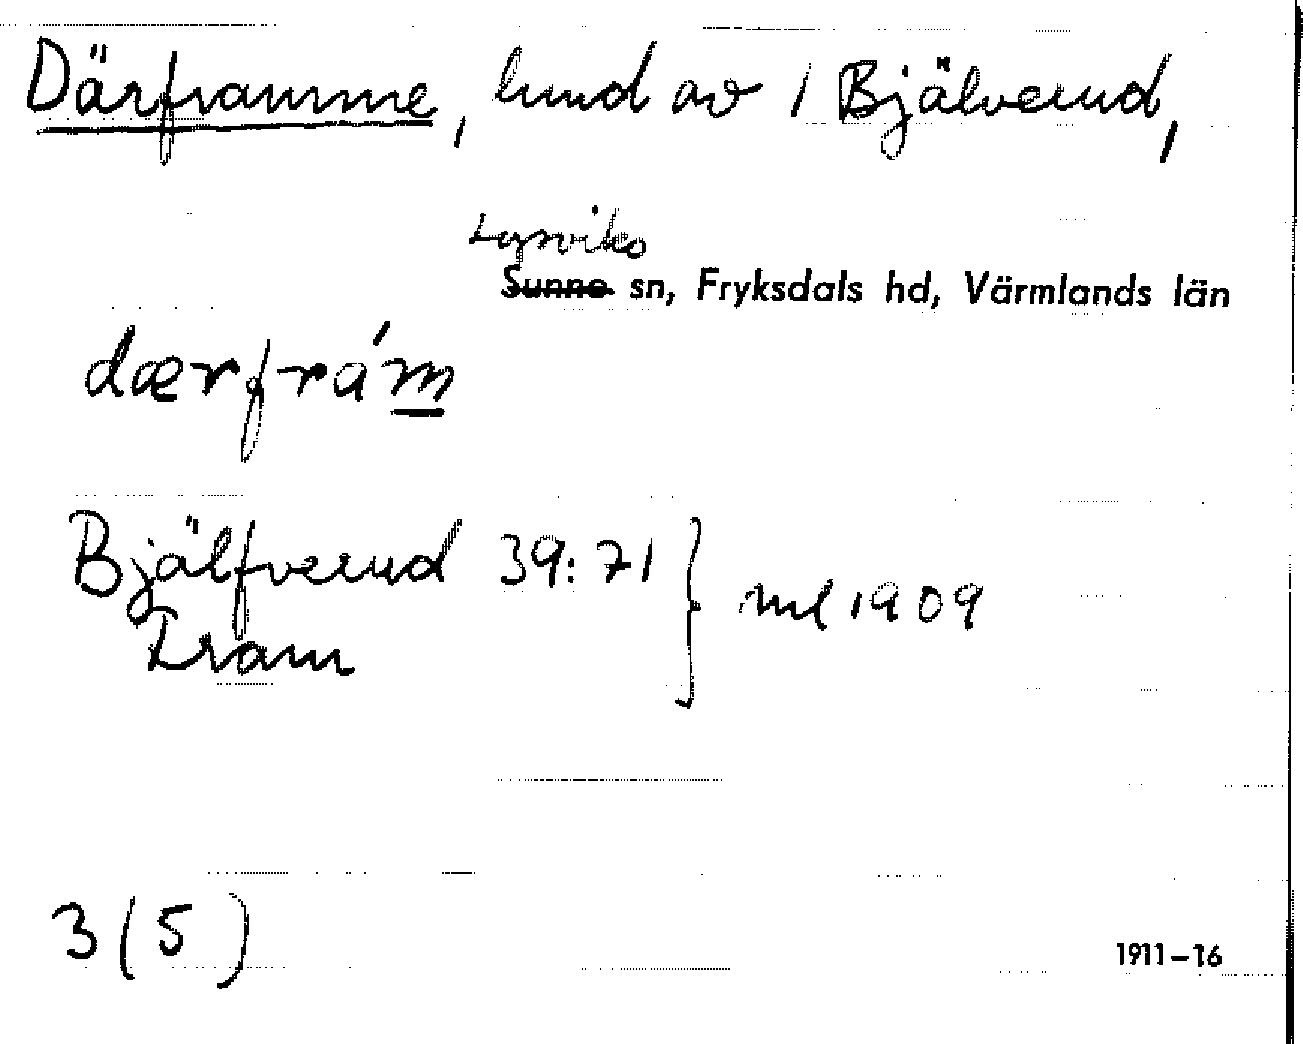 Därframme, lund av 1 Bjälverud,
Lysviks
Sunne sn, Fryksdals hd, Värmlands län
dærfrám
Bjälfverud 39:71 } ml 1909
Fram
3 (5)
1911–16